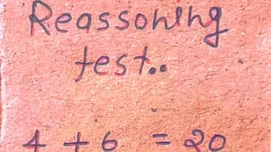 Reassoning
test..
4 + 6 = 20